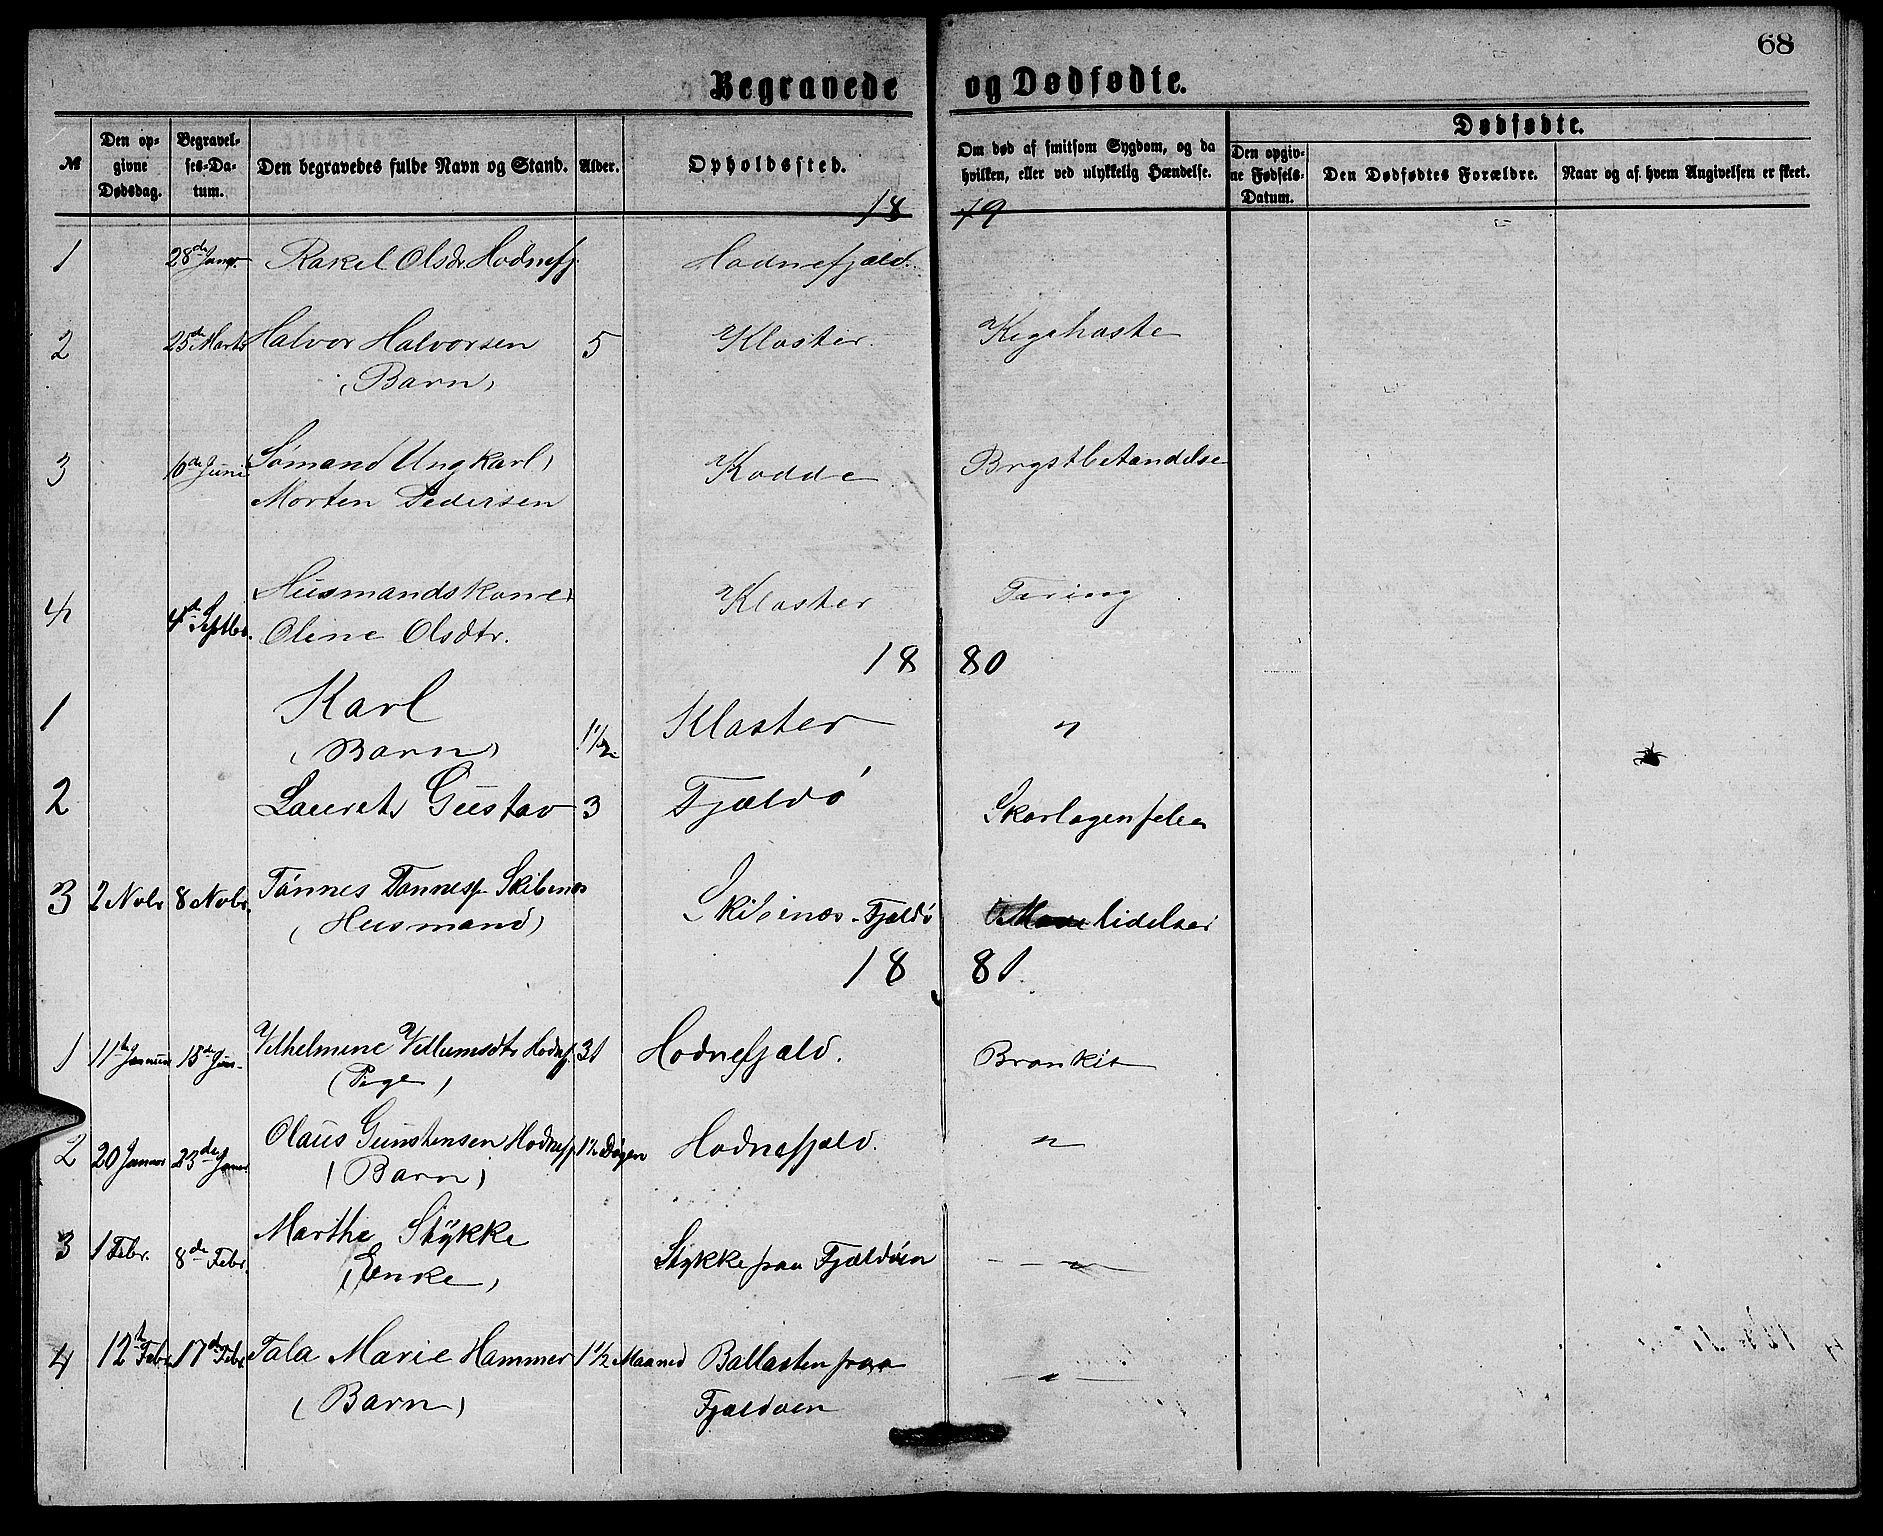 68
Begravede og Dødfødte.
№ Den opgivne Dødsdag. Begravelses-Datum. Den begravedes fulde Navn og Stand. Alder. Opholdssted. Om død af smitsom Sygdom, og da hvilken, eller ved ulykkelig Hændelse. Dødfødte. Den opgivne Fødsels-Datum. Den Dødfødtes Forældre. Naar og af hvem Angivelsen er skeet.
18 79
1 28de Janr. Rakel Olsdr. Hodnefj. Hodnefjæld.
2 25de Marts Halvor Halvorsen 5 Kloster. Kighoste
(Barn)
3 6de Juni Sømand Ungkarl, Kodde Brystbetændelse
Morten Pedersen
4 4de Septbr. Husmandskone, Kloster Tæring
Oline Olsdtr.
18 80
1 Karl Kloster "
(Barn) 1½
2 Laurits Gustav 3 Fjældö Skarlagensfeber
3 2 Nobr 8 Nobr. Tönnes Tönness. Skibenes Skibinæs-Fjældö lidelser
(Husmand)
18 81.
1 11te Januar 15de Jan. Vilhelmine Villumsdtr Hodnefj. 31 Hodnefjæld. Bronkit
(Pige)
2 20 Januar 23de Janr Olaus Gunstensen Hodnefj. 1½ Døgen Hodnefjæld. "
(Barn)
3 1 Febr. 8de Febr. Marthe Stykke Stykke paa Fjældöen - - " -
(Enke)
4 12te Febr 17de Febr Tala Marie Hammer 1½ Maaned Ballasten paa - " -
(Barn) Fjældöen